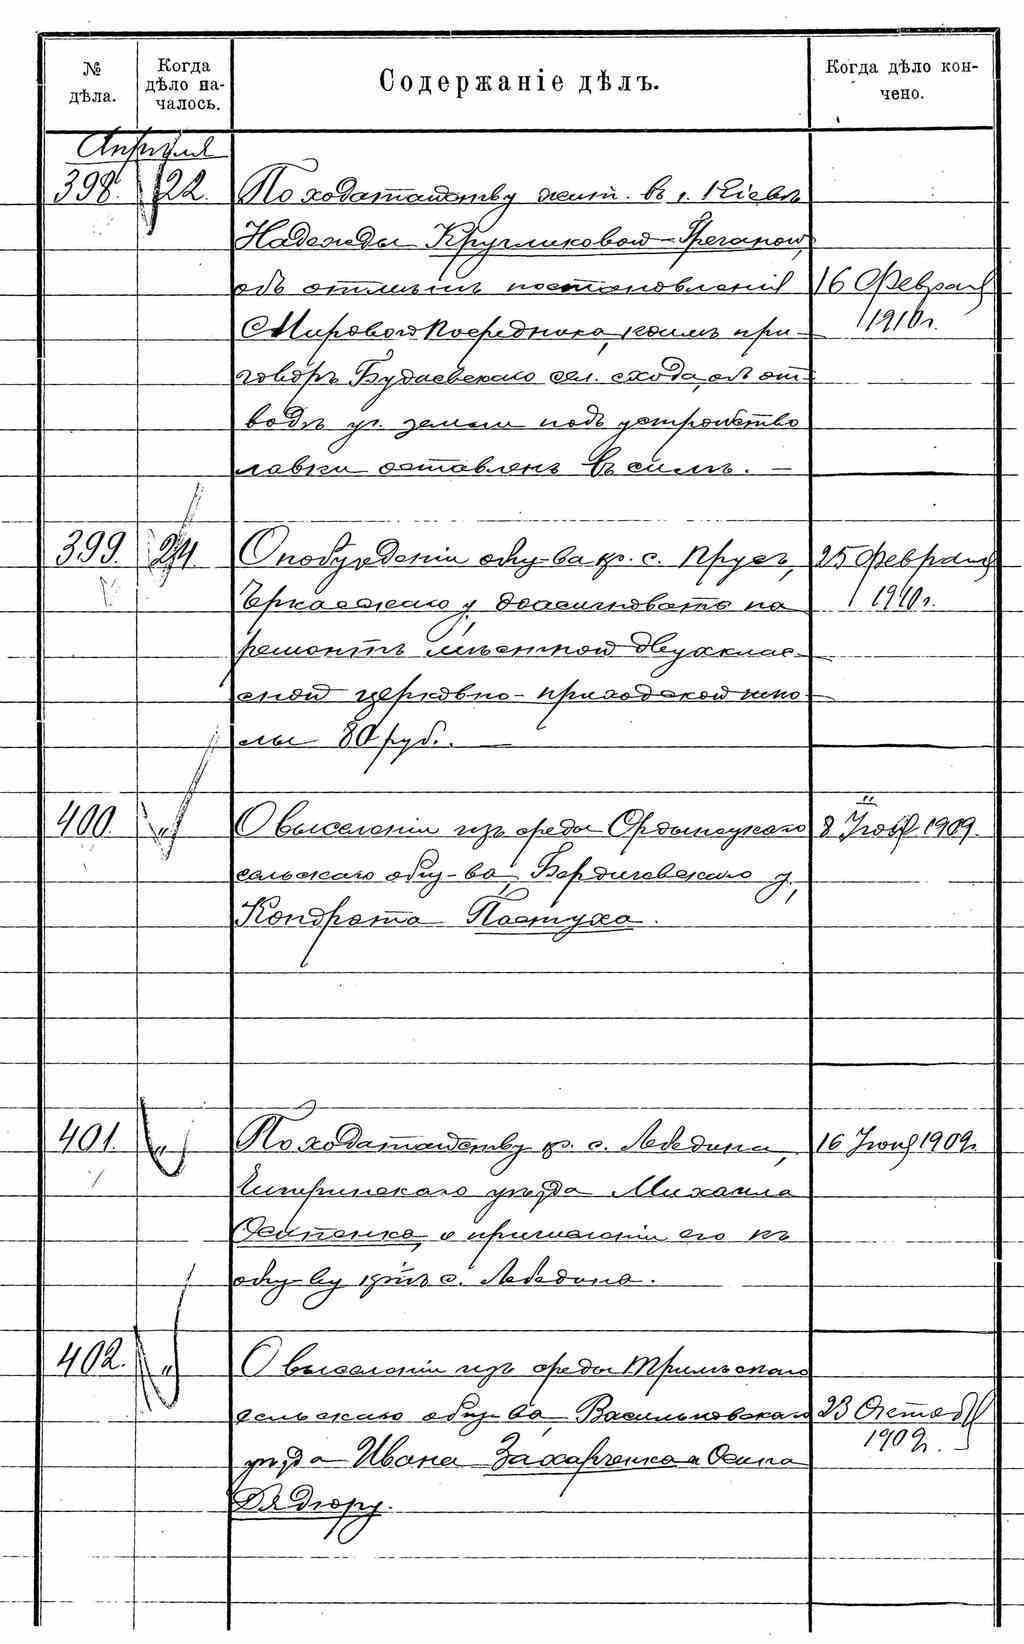 № дѣла.
Когда дѣло на-
чалось.
Содержаніе дѣлъ.
Когда дѣло кон-
чено.
Апрѣля
398. 22. По ходатайству жит. въ г. Кіевѣ
Надежды Кругликовой-Грегановой,
объ отмѣнѣ постановленія 16 Февраля
Мирового Посредника, коимъ при- 1910 г.
говоръ Будаевскаго сел. схода, объ от-
водѣ уч. земли подъ устройство
лавки оставленъ въ силѣ. —
399. 24. О побужденіи общ-ва кр. с. Прусъ, 25 Февраля
Черкасскаго у. доассигновать на 1910 г.
ремонтъ мѣстной двухклас-
сной церковно-приходской шко-
лы 80 руб. —
400. " О выселеніи изъ среды Ордынецкаго 8 Іюня 1909.
сельскаго общ-ва, Бердичевскаго у.,
Кондрата Пастуха.
401. " По ходатайству кр. с. Лебедина, 16 Іюня 1909 г.
Чигиринскаго уѣзда Михаила
Осипенко, о причисленіи его къ
общ-ву кр-нъ с. Лебедина.
402. " О выселеніи изъ среды Трилѣскаго
сельскаго общ-ва, Васильковскаго 23 Октября
уѣзда Ивана Захарченка и Осипа 1909 г.
Дядюру.